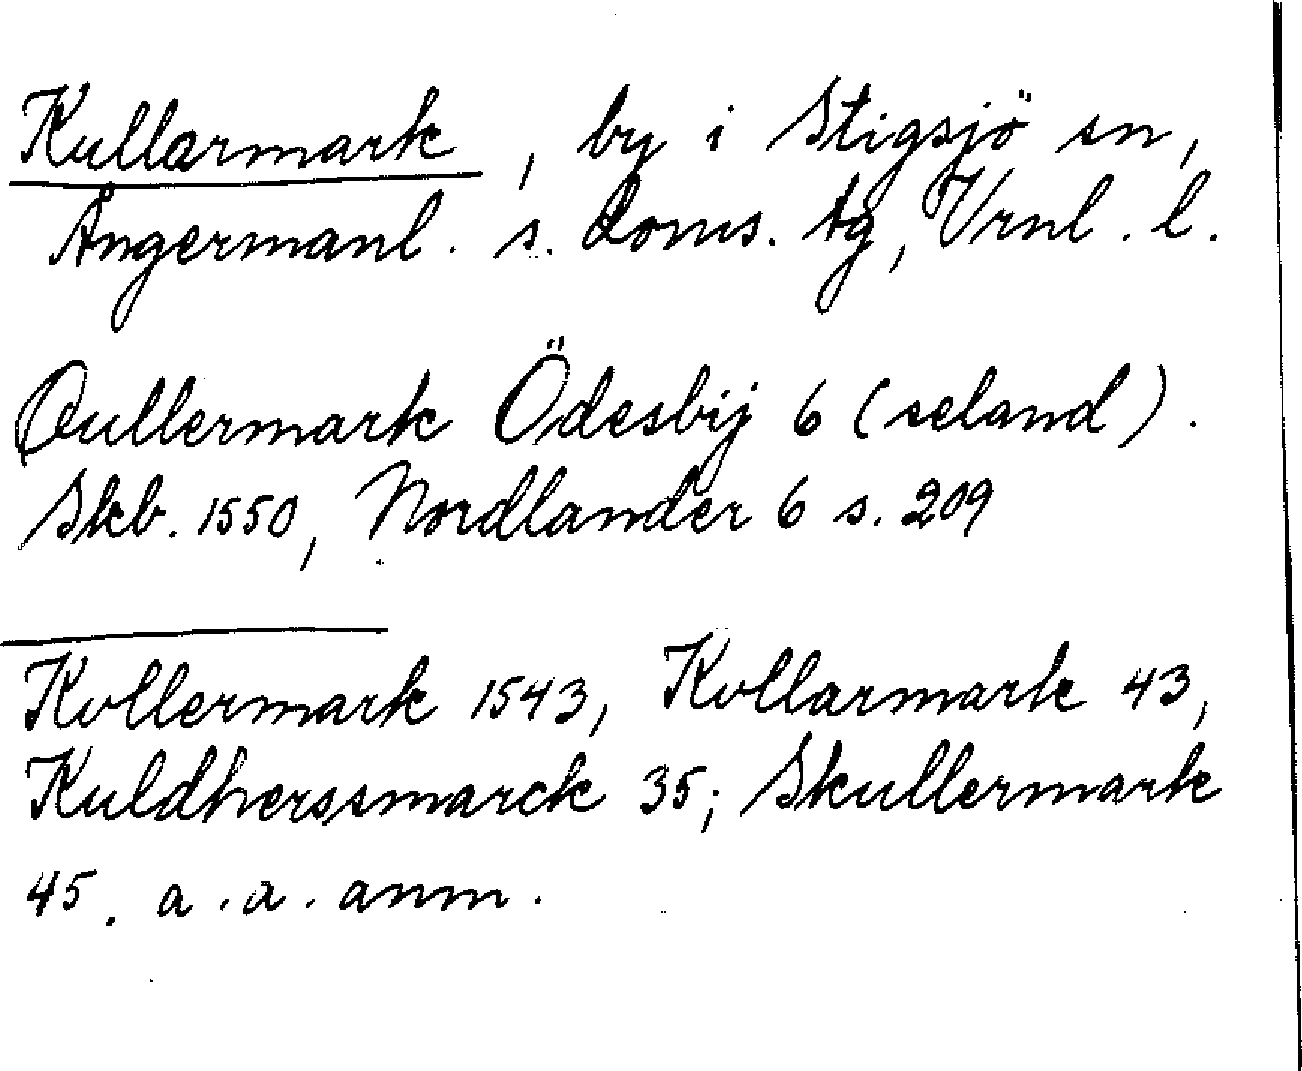 Kullarmark, by i Stigsjö sn,
Ångermanl. s. doms. tg, Vrnl. l.
Qullermark Ödesbij 6 (seland).
Skb. 1550, Nordlander 6 s. 209
Kollermark 1543, Kollarmark 43,
Kuldherssmarck 35; Skullermark
45. a.a. anm.